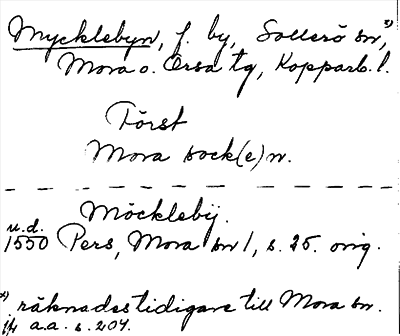 Mycklebyn, f. by, Sollerö sn, x)
Mora o. Orsa tg, Kopparb. l.
Först
Mora sock(e)n.
Möcklebÿ.
u.d.
1550 Pers, Mora sn 1, s. 25. orig.
x) räknades tidigare till Mora sn.
jfr a.a. s. 204.